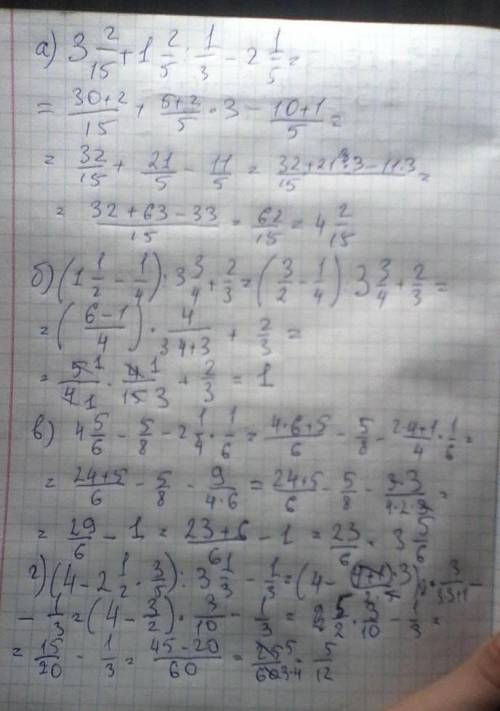 а) 3 2/15 + 1 2/5 : 1/3 - 2 1/5 =
= 30+2/15 + 5+2/5 · 3 - 10+1/5 =
= 32/15 + 21/5 - 11/5 = 32+21·3-11·3/15 =
= 32+63-33/15 = 62/15 = 4 2/15
б) (1 1/2 - 1/4) : 3 3/4 + 2/3 = (3/2 - 1/4) : 3 3/4 + 2/3 =
= (6-1/4) · 4/3·4+3 + 2/3 =
= 5/4 · 4/15 + 2/3 = 1
в) 4 5/6 - 5/8 - 2 1/4 · 1/6 = 4·6+5/6 - 5/8 - 2·4+1/4 · 1/6 =
= 24+5/6 - 5/8 - 9/4·6 = 24+5/6 - 5/8 - 3·3/4·2·3 =
= 29/6 - 1 = 23+6/6 - 1 = 23/6 = 3 5/6
г) (4 - 2 1/2 · 3/5) : 3 1/3 - 1/3 = (4 - (4+1)·3/2·5) · 3/3·3+1 -
- 1/3 = (4 - 3/2) · 3/10 - 1/3 = 5/2 · 3/10 - 1/3 =
= 15/20 - 1/3 = 45-20/60 = 25/60 = 5/12